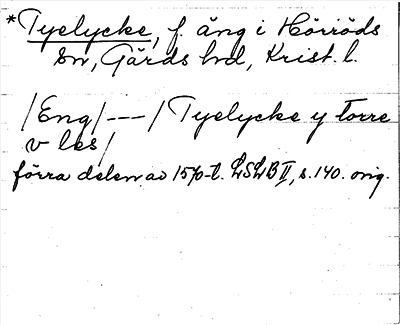 *Tyelycke, f. äng i Hörröds
sn, Gärds hd, Krist. l.
/Eng/---/ Tyelycke y torre
v les/
förra delen av 1570-t. LSLB II, s. 140. orig.